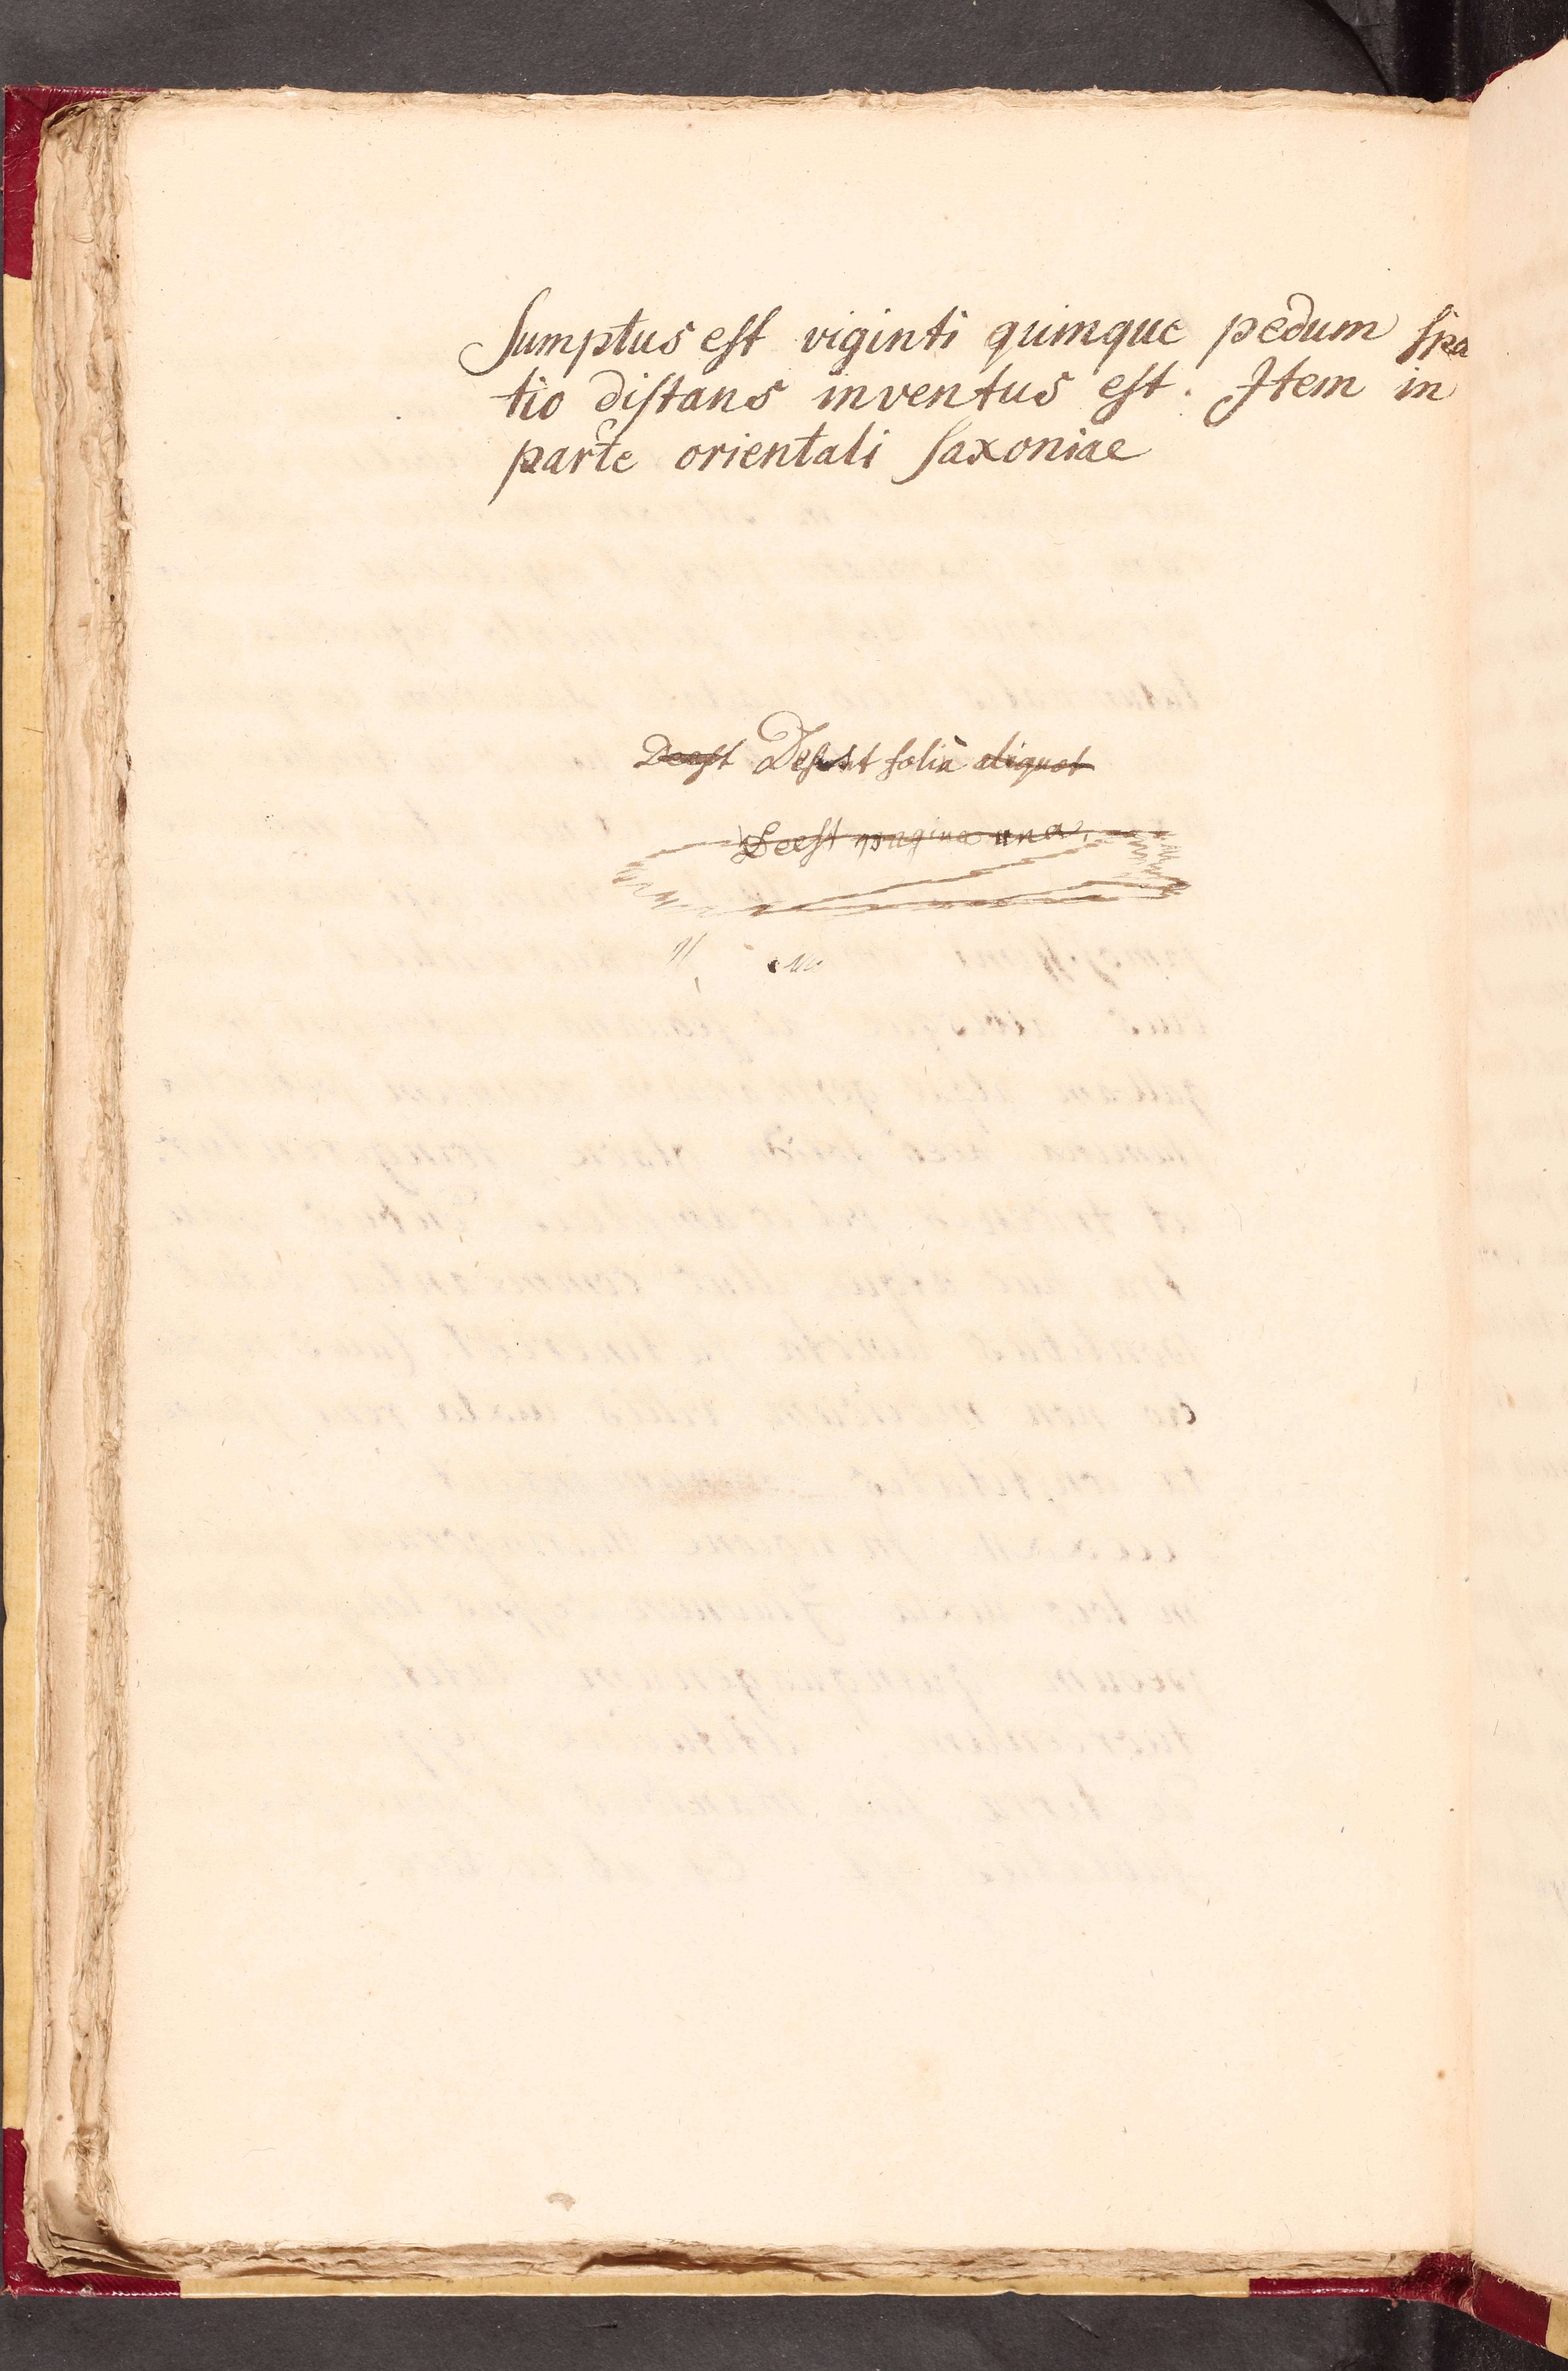 Sumptus est viginti quinque pedum spa
tio distans inventus est. Item in
parte orientali Saxoniae
Deest Desunt folia aliquot
Deest pagina una.